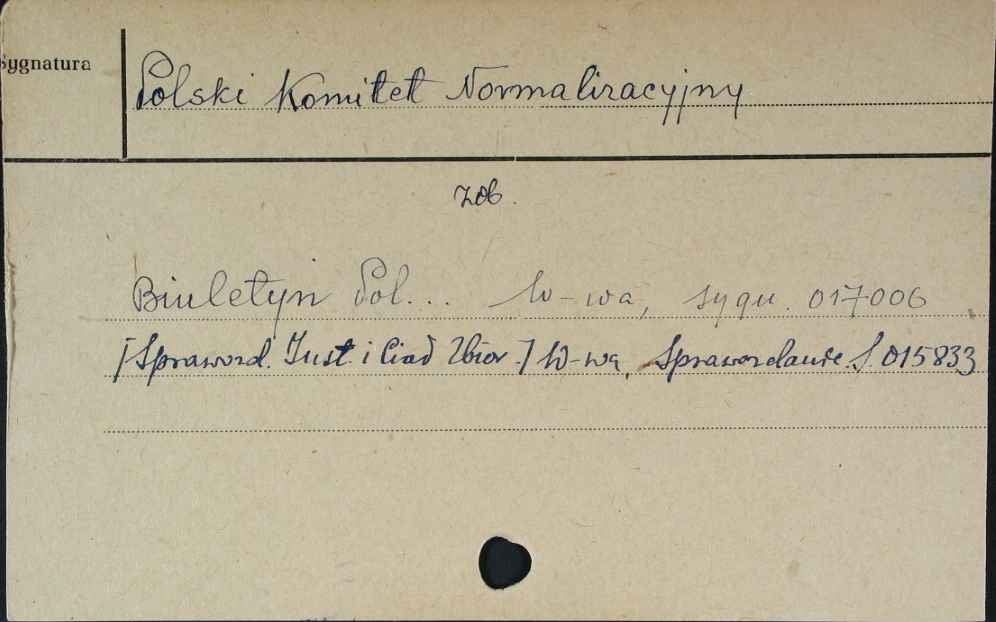 Sygnatura
Polski Komitet Normalizacyjny
zob.
Biuletyn Pol... W-wa, sygn. 017006
[Sprawozd. Inst. i Ciał Zbior.] W-wa, Sprawozdanie. S. 015833